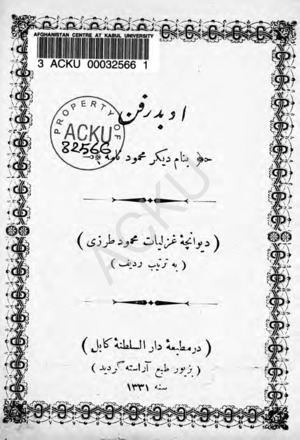 AFGHANISTAN CENTRE AT KABUL UNIVERSITY
3 ACKU 00032566 1
ادبدرفن
PROPERTY OF
ACKU
32566
بنام دیگر محمود نامه
ACKU
( دیوانچهٔ غزلیات محمود طرزی )
( به ترتیب ردیف )
( در مطبعهٔ دار السلطنهٔ کابل )
( بزیور طبع آراسته گردید )
سنه ۱۳۳۱